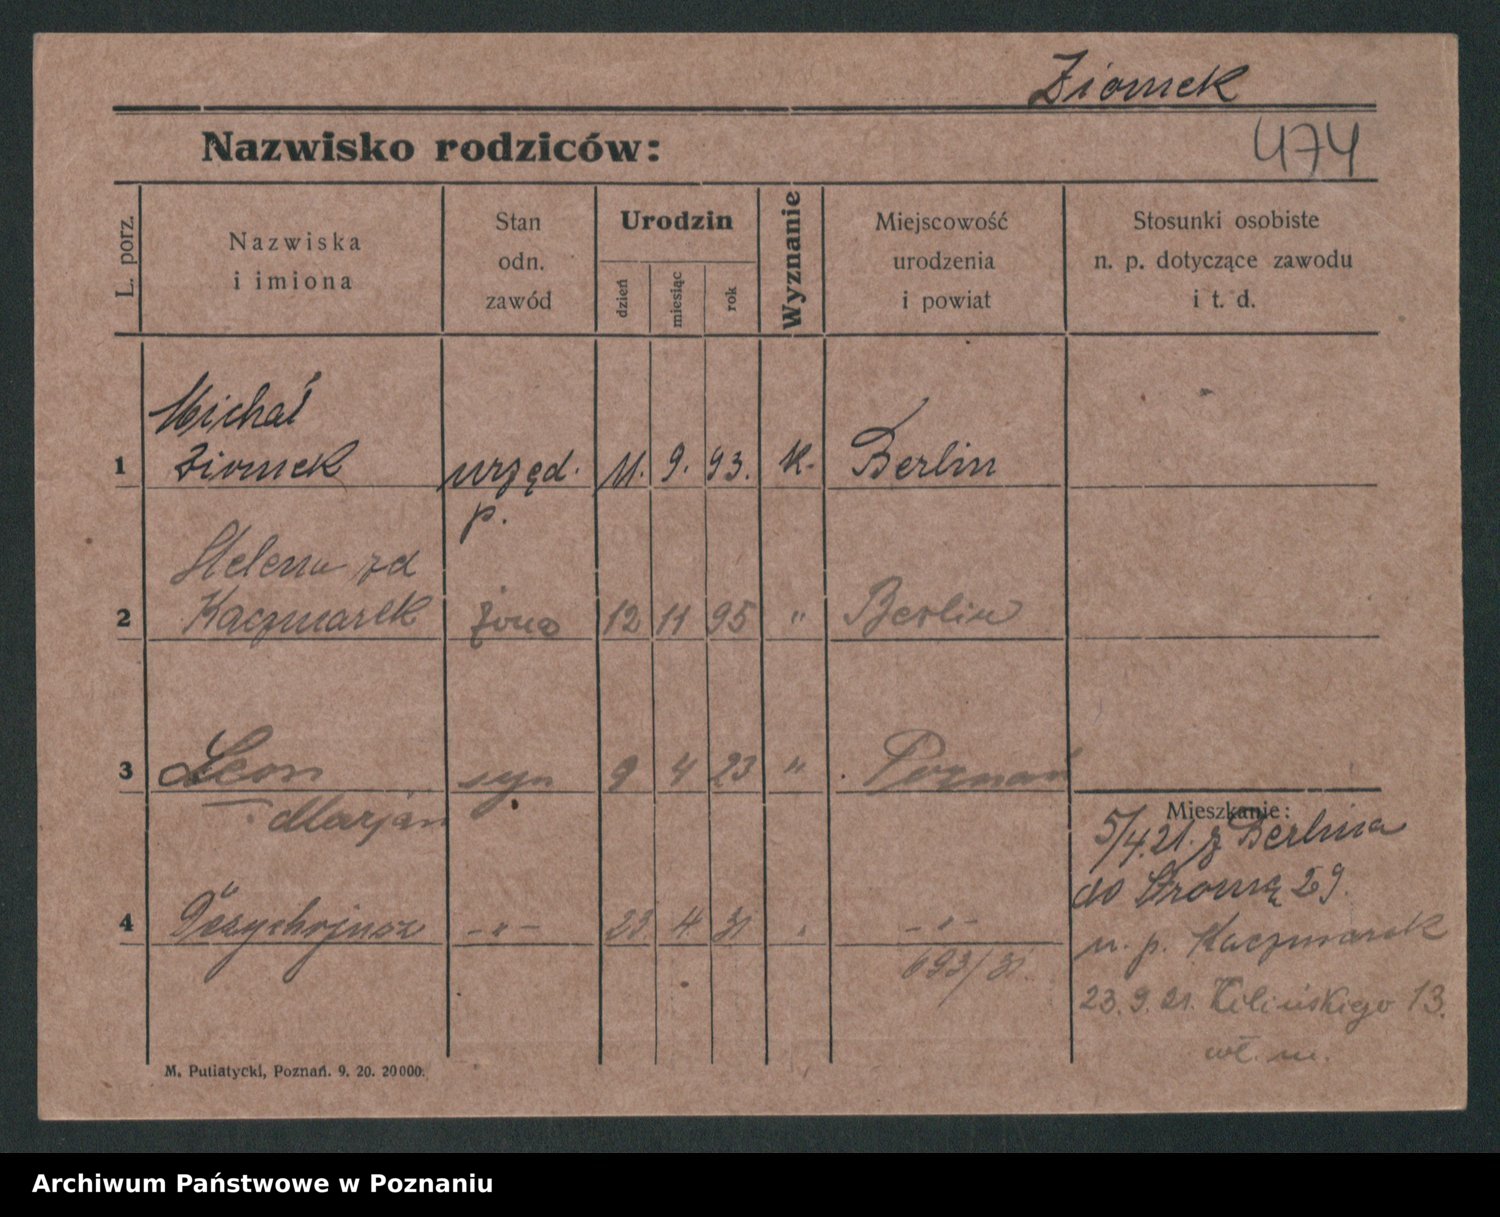 Ziomek
Nazwisko rodziców:
474
L. porz.
Nazwiska
i imiona
Stan
odn.
zawód
Urodzin
dzień
miesiąc
rok
Wyznanie
Miejscowość
urodzenia
i powiat
Stosunki osobiste
n. p. dotyczące zawodu
i t. d.
Michał
1 Ziomek urzęd. 11. 9. 93. k. Berlin
p.
Helena zd
2 Kaczmarek żona 12 11 95 " Berlin
3 Leon syn 9 4 23 " Poznań
Marjan
4 -"- 23 4 31 " -"-
693/31
Mieszkanie:
5/4.21. z Berlina
do 29.
u. p. Kaczmarek
23.9.21. Kilińskiego 13.
wł. m.
M. Putiatycki, Poznań. 9. 20. 20000.
Archiwum Państwowe w Poznaniu